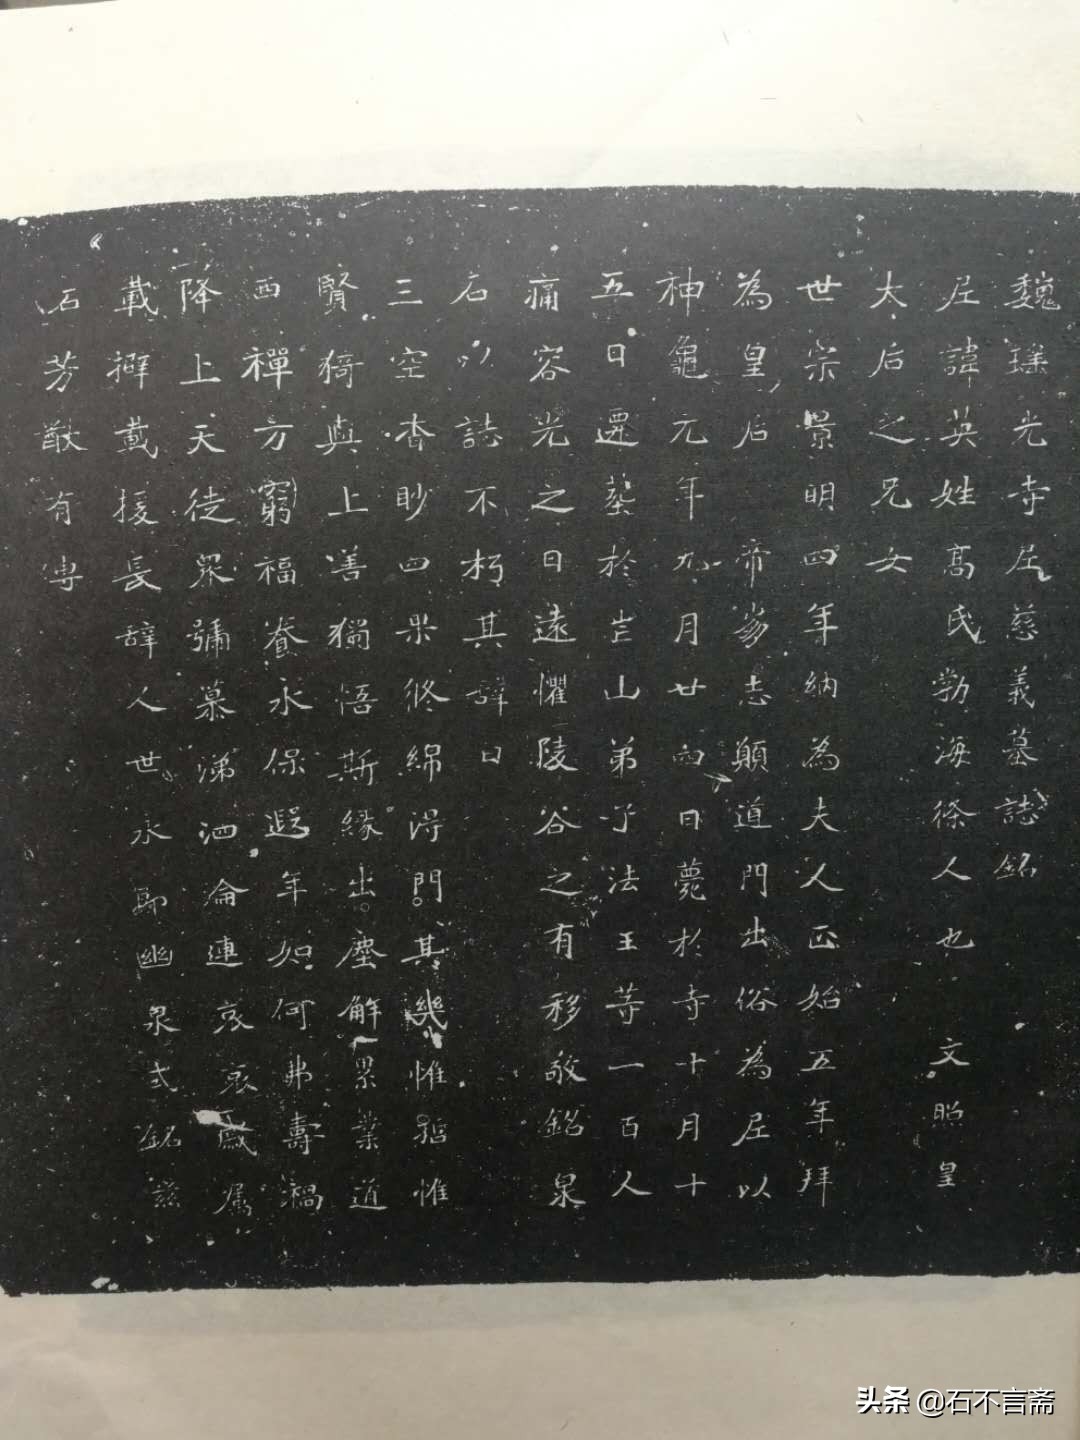 魏瑤光寺尼慈義墓誌銘
尼諱英姓高氏勃海條人也 文昭皇
太后之兄女
世宗景明四年納為夫人正始五年拜
為皇后 帝崩志願道門出俗為尼以
神龜元年九月廿四日薨於寺十月十
五日遷葬於芒山弟子法王等一百人
痛容光之日遠懼陵谷之有移敬銘泉
石以誌不朽其辞曰
三空杳眇四果攸綿得門其幾惟哲惟
賢猗與上善獨悟斯緣出塵解累業道
西禪方窮福養永保遐年如何弗壽禍
降上天徒眾號慕涕泗淪連哀哀戚属
載擗載援長辞人世永即幽泉式銘茲
石芳猷有傳
头条 @石不言斋